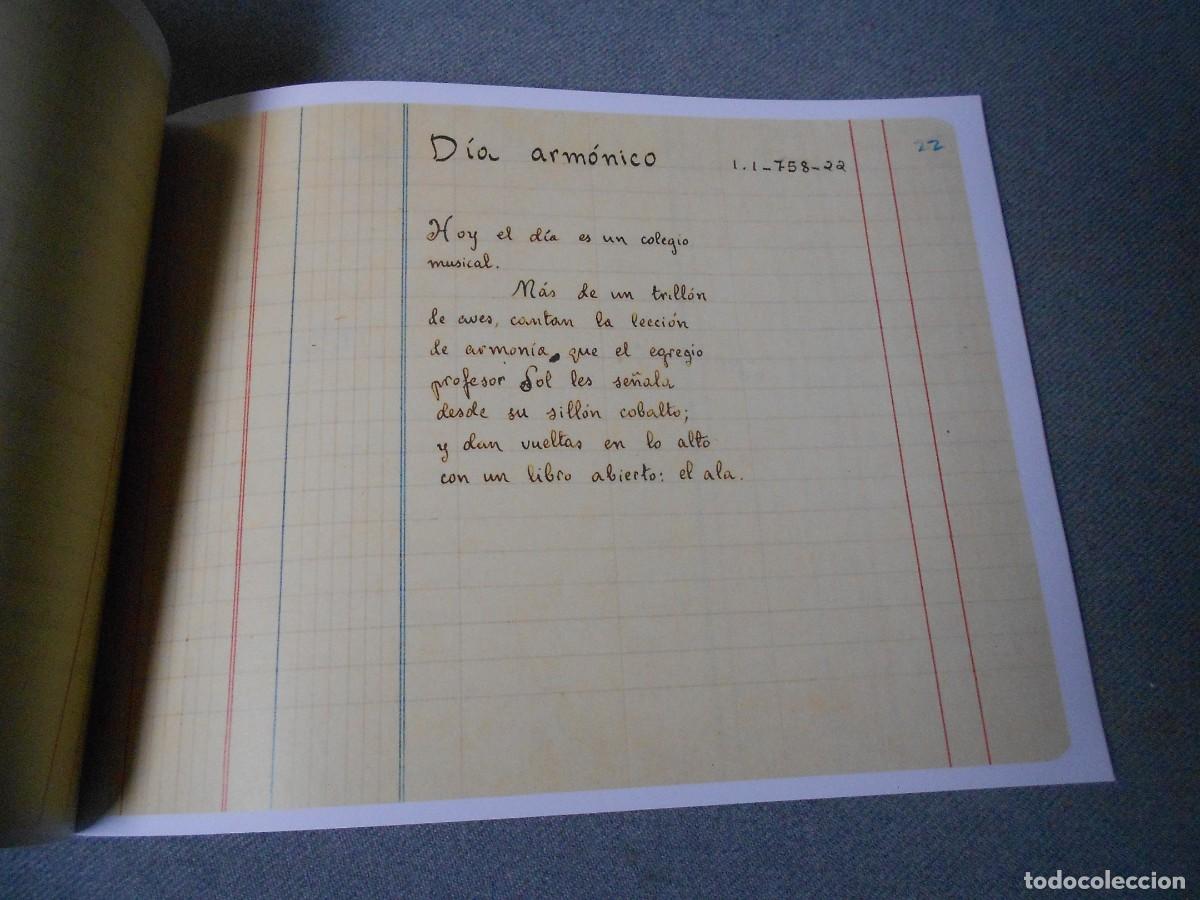 Día armónico
1.1-758-22
22
Hoy el día es un colegio
musical.
Más de un trillón
de aves, cantan la lección
de armonía que el egregio
profesor Sol les señala
desde su sillón cobalto;
y dan vueltas en lo alto
con un libro abierto: el ala.
todocoleccion